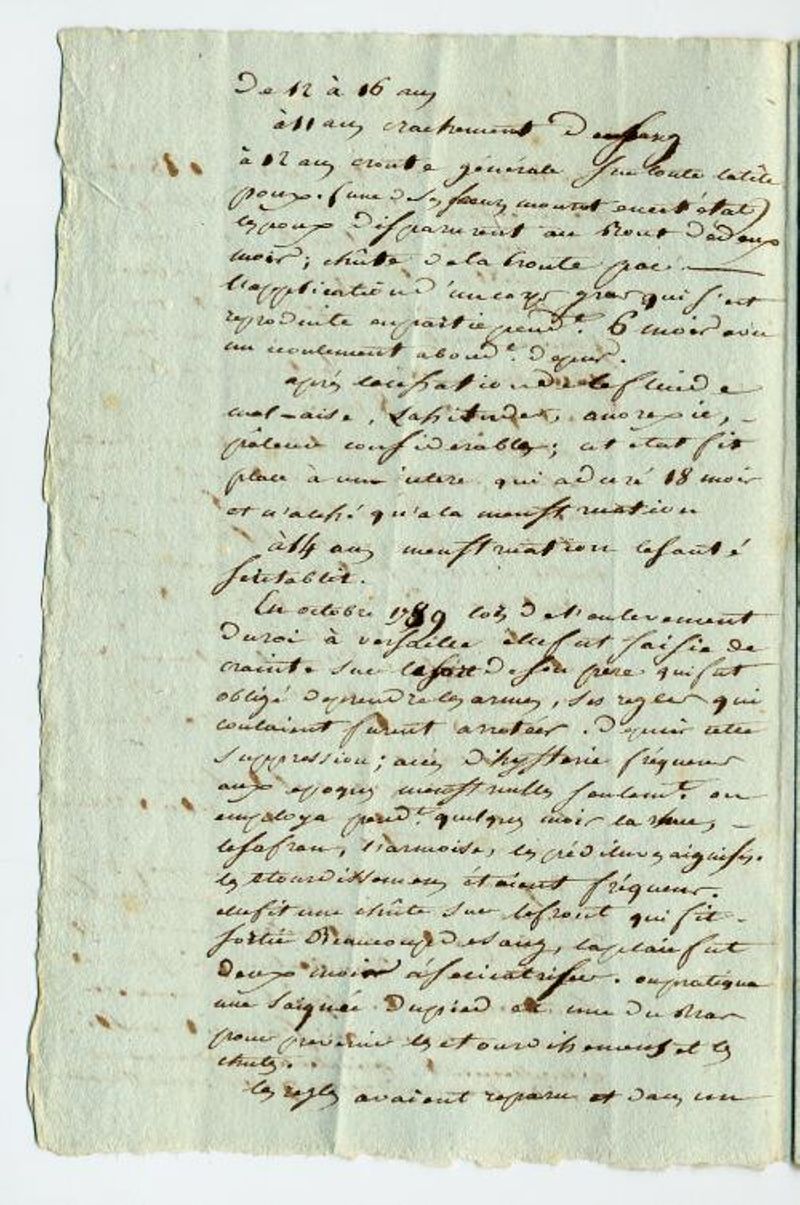 De 12 à 16 ans
à 11 ans crachement de sang
à 12 ans croute générale sur toute la tête
poux. (une de ses soeurs mourut en cet état)
les poux disparurent au bout de deux
mois; chûte de la croute par
l'application d'un corps gras qui s'est
reproduite en partie pend.t 6 mois avec
un ecoulement abond.t de pus.
après la cessation de ce fluide
mal-aise, lassitudes, anorexie,
pâleur considerable; cet état fit
place à un ictere qui a duré 18 mois
et n'a cessé qu'a la menstruation
à 14 ans menstruation la santé
se rétablit.
En octobre 1789 lors de l'enlevement
du roi à versailles elle fut saisie de
crainte sur le sort de son père qui fut
obligé de prendre les armes, ses regles qui
coulaient furent arretées. depuis cette
suppression; accès d'hysterie fréquens
aux epoques menstruelles seulem.t on
employa pend.t quelques mois la rhue,
le safran, l'armoise, les pédiluves aiguisés.
les etourdissemens etaient fréquens.
elle fit une chûte sur le front qui fit
sortir Beaucoup de sang, la plaie fut
deux mois à se cicatriser. on pratiqua
une saignée du pied et une du Bras
pour prevenir les etourdissemens et les
chutes.
les regles avaient reparu et dans un